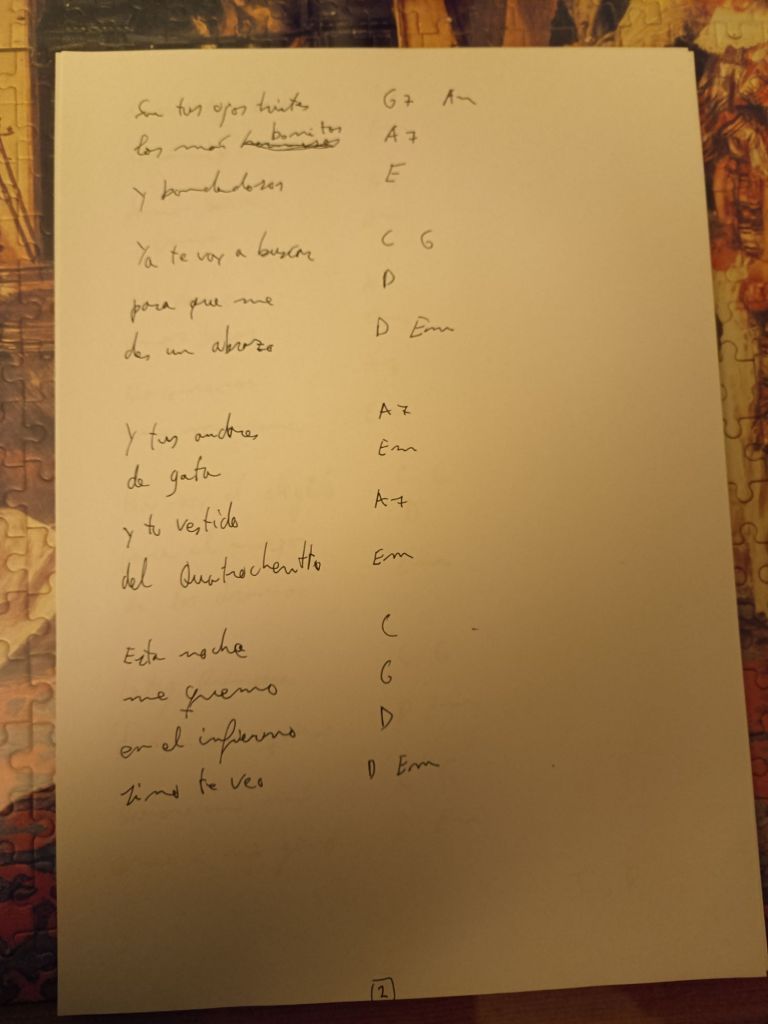 Son tus ojos tristes G7 Am
los mas bonitos A7
y bondadosos E
Ya te voy a buscar C G
para que me D
des un abrazo D Em
Y tus andares A7
de gata Em
y tu vestido A7
del Quatrochentto Em
Esta noche C
me quemo G
en el infierno D
si no te veo D Em
2